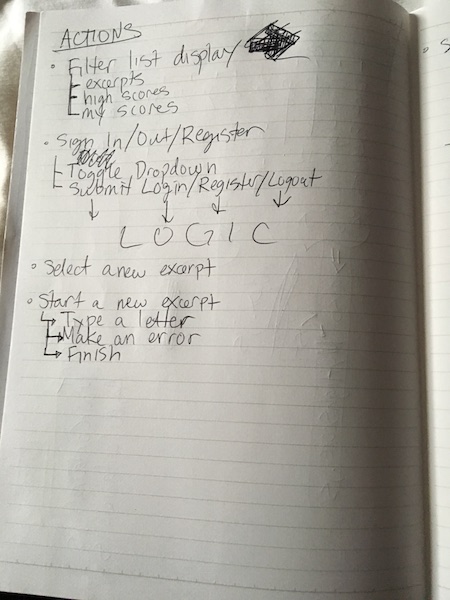 ACTIONS
• Filter list display/
excerpts
high scores
my scores
• Sign In/Out/Register
Toggle Dropdown
Submit Login/Register/Logout
LOGIC
• Select a new excerpt
• Start a new excerpt
Type a letter
Make an error
Finish